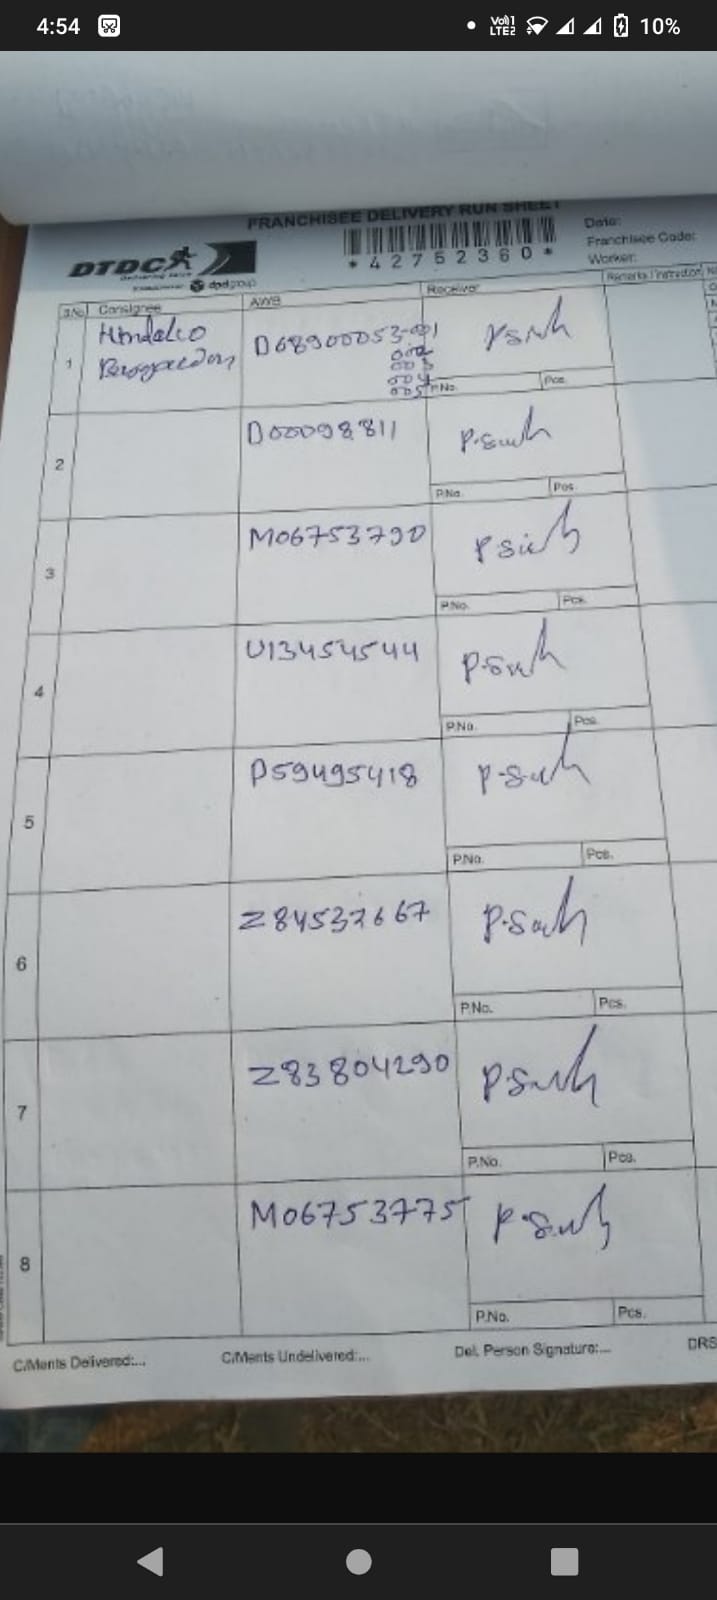 4:54
Vol)1
LTE2
10%
FRANCHISEE DELIVERY RUN SHEET
DTDC
dpdgroup
* 4 2 7 5 2 3 6 0 *
Date:
Franchisee Code:
Worker:
S.No. Consignee AWB Receiver
1 Hindalco D68900053-001 P.Singh
002
003
004
005
P.No. Pcs.
2 D00098811 P.Singh
P.No. Pcs.
3 M06753790 P Singh
P.No. Pcs.
4 U13454544 P.Singh
P.No. Pcs.
5 P59495418 P.Singh
P.No. Pcs.
6 Z84532667 P.Singh
P.No. Pcs.
7 Z83804290 P.Singh
P.No. Pcs.
8 M06753775 P.Singh
P.No. Pcs.
C/Ments Delivered:... C/Ments Undelivered:... Del. Person Signature:... DRS